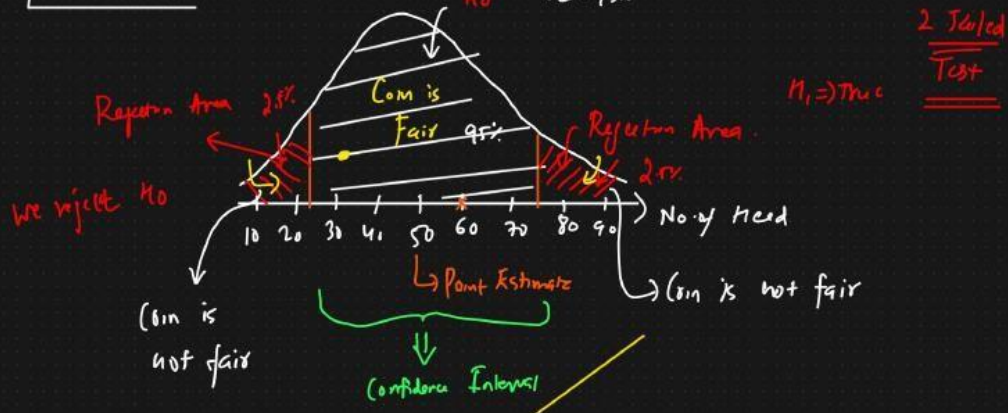 2 Tailed
Test
H1 => True
Rejection Area 2.5%
Coin is
Fair 95%
Rejection Area.
2.5%
We reject H0
10 20 30 40 50 60 70 80 90
No. of Head
Point Estimate
Coin is not fair
Coin is
not fair
Confidence Interval